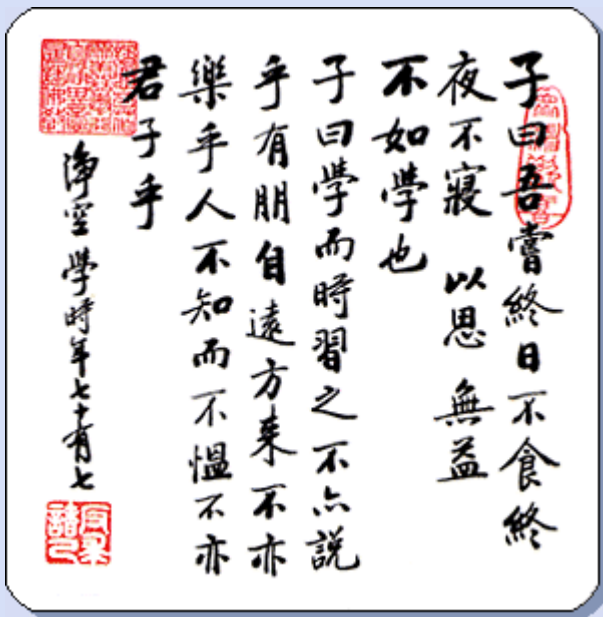 子曰吾嘗終日不食終
夜不寢 以思 無益
不如學也
子曰學而時習之不亦説
乎有朋自遠方来不亦
樂乎人不知而不慍不亦
君子乎
淨空學時年七十有七
反求諸己